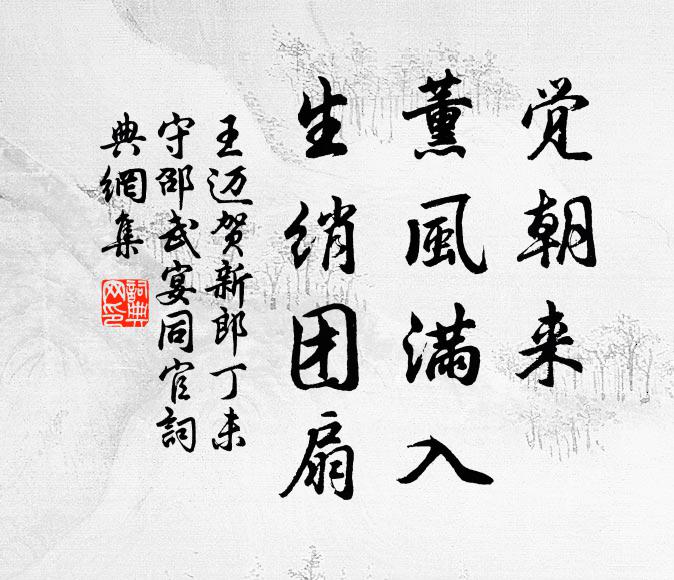 觉朝来
薰風满入
生绡团扇
王迈贺新郎丁未
守邵武宴同官詞
典網集
詞典網印